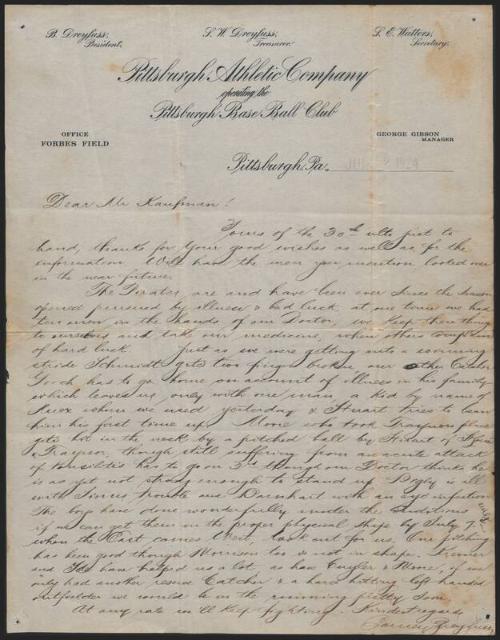 B. Dreyfuss, President.
S. W. Dreyfuss, Treasurer.
S. E. Watters, Secretary.
Pittsburgh Athletic Company
operating the
Pittsburgh Base Ball Club
OFFICE
FORBES FIELD
GEORGE GIBSON
MANAGER
Pittsburgh, Pa.
Dear Mr Kaufman!
Yours of the 30th ulto just to
hand, thanks for your good wishes as well as for the
information. Will have the men you mention looked over
in the near future.
The Pirates are and have been ever since the season
opened pursued by illness & bad luck, at one time we had
ten men in the hands of our Doctor, we keep these things
to ourselves and take our medicine, when others complain
of hard luck. Just as we were getting into a winning
stride Schmidt gets two fingers broken, our other Catcher
Gooch has to go home on account of illness in his family
which leaves us only with one man, a kid by name of
whom we used yesterday & Stuart tries to
him his first time up. Moore who took Grayson place
gets hit in the neck by a pitched ball by Stuart of
Traynor, though still suffering from an acute attack
of tonsilitis has to go on 3rd though our Doctor thinks he
is as yet not strong enough to stand up. is ill
with Sinus trouble and Barnhart with an eye infection
The boys have done wonderfully under the conditions
if we can get them in the proper physical shape by July 7
when the East comes West, look out for us. Our pitching
has been good though Morrison too is not in shape. Kremer
and have helped us a lot, as have Cuyler & Moore, if we
only had another Catcher & a hard hitting left handed
outfielder we would be in the running pretty soon.
At any rate we'll keep fighting. Kindest regards
Barney Dreyfuss